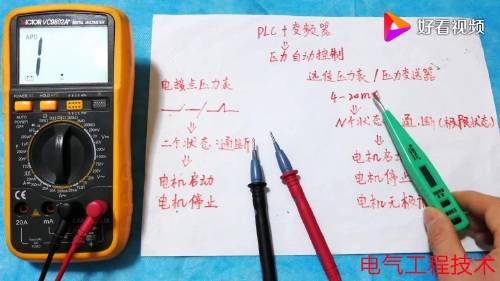 好看视频
VICTOR VC9802A+
APO
1
20A
mA
PLC+变频器
压力自动控制
电接点压力表
二个状态:通断
电机启动
电机停止
远传压力表/压力变送器
4-20m
N个状态 通.断(极限状态)
电机启
电机停止
电机无极
电气工程技术